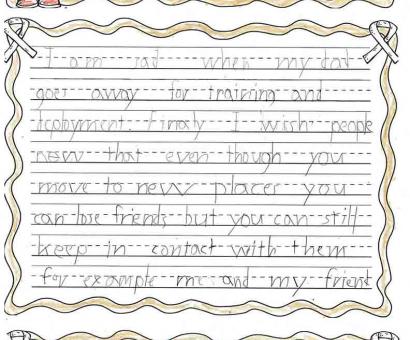 I am sad when my dad
goes away for training and
deployment. Finaly I wish people
new that even though you
move to new places you
can lose friends but you can still
keep in contact with them
for example me and my frient